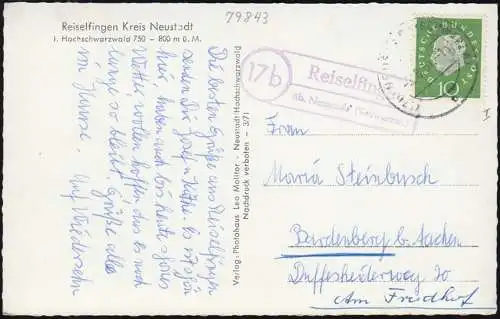 79843
Reiselfingen Kreis Neustadt
i. Hochschwarzwald 750 - 800 m ü. M.
Die besten Grüße aus Reiselfingen
senden Dir Josef u. Käthe. Es ist schön
hier, haben auch bis heute gutes
Wetter, wollen hoffen das es noch
lange so bleibt. Grüße alle
von Hause. Auf Wiedersehn
Verlag: Photohaus Leo Molitor - Neustadt Hochschwarzwald
Nachdruck verboten - 3/71
17b
Reiselfingen
üb. Neustadt
DEUTSCHE BUNDESPOST
10
Frau
Maria Steinbusch
Bardenberg b. Aachen
Duffesheiderweg 20
Am Friedhof